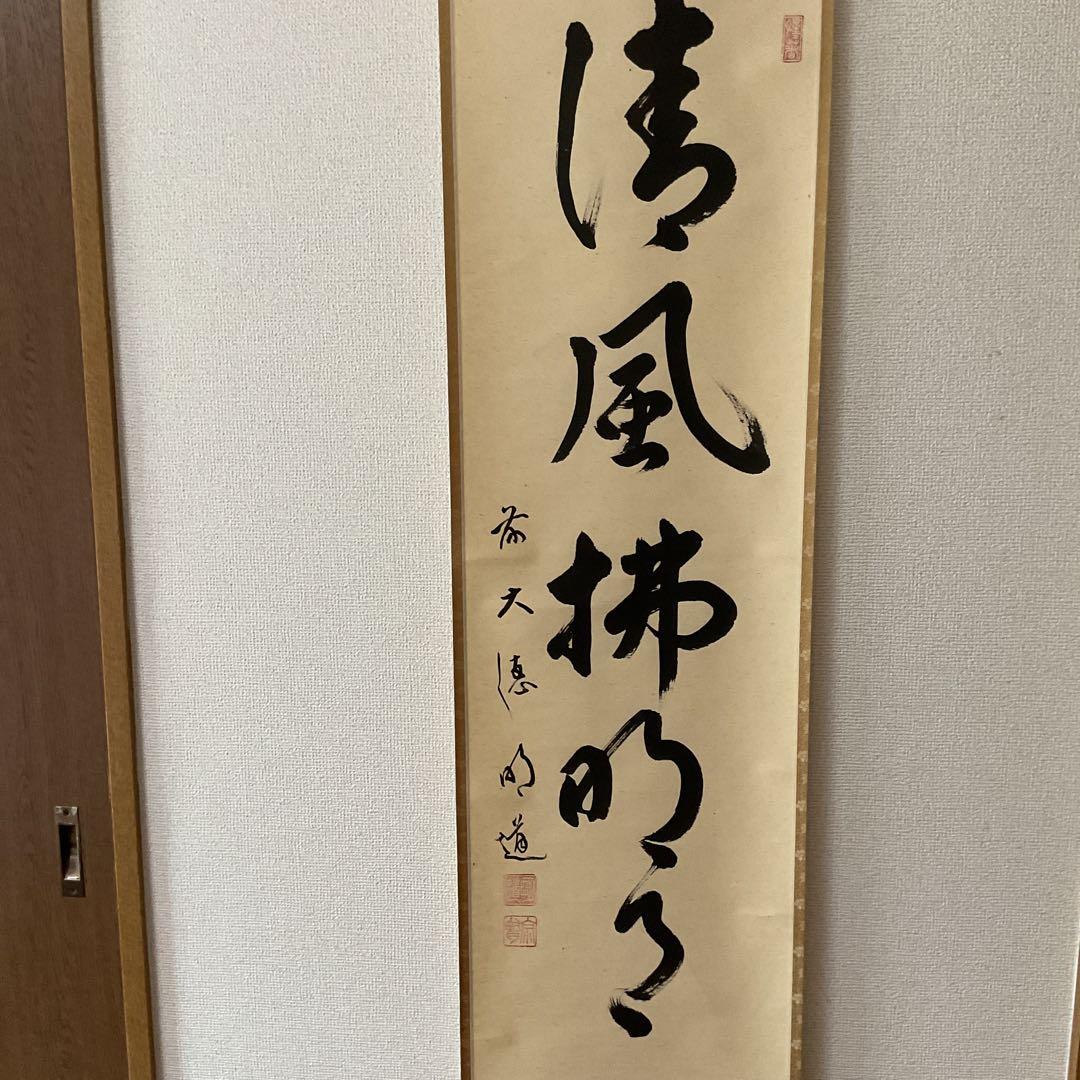 清風拂明月
前大德明道